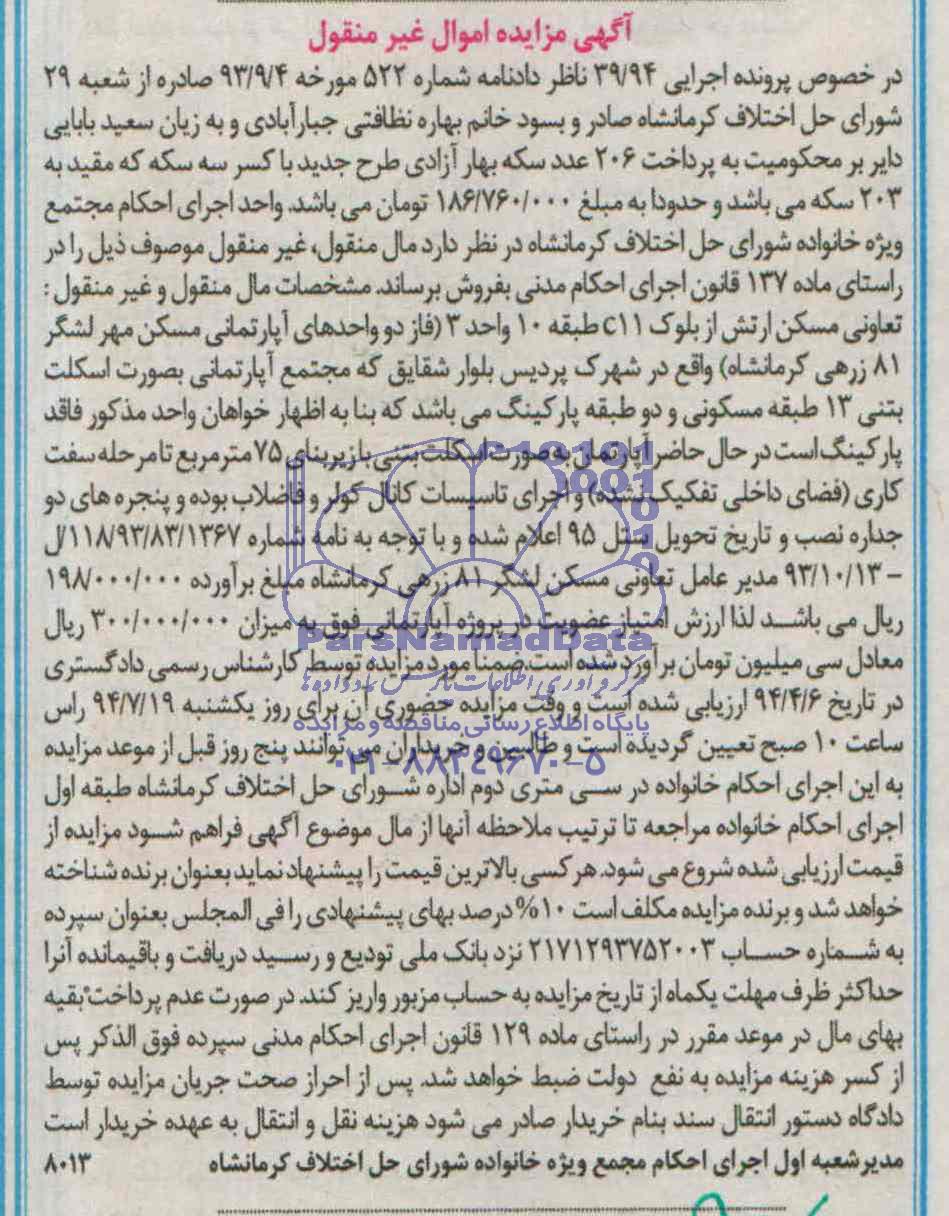 آگهی مزایده اموال غیر منقول
در خصوص پرونده اجرایی ۳۹/۹۴ ناظر دادنامه شماره ۵۲۲ مورخه ۹۳/۹/۴ صادره از شعبه ۲۹
شورای حل اختلاف کرمانشاه صادر و بسود خانم بهاره نظافتی جبارآبادی و به زیان سعید بابایی
دایر بر محکومیت به پرداخت ۲۰۶ عدد سکه بهار آزادی طرح جدید با کسر سه سکه که مقید به
۲۰۳ سکه می باشد و حدودا به مبلغ ۱۸۶/۷۶۰/۰۰۰ تومان می باشد. واحد اجرای احکام مجتمع
ویژه خانواده شورای حل اختلاف کرمانشاه در نظر دارد مال منقول، غیر منقول موصوف ذیل را در
راستای ماده ۱۳۷ قانون اجرای احکام مدنی بفروش برساند. مشخصات مال منقول و غیر منقول :
تعاونی مسکن ارتش از بلوک c۱۱ طبقه ۱۰ واحد ۳ (فاز دو واحدهای آپارتمانی مسکن مهر لشگر
۸۱ زرهی کرمانشاه) واقع در شهرک پردیس بلوار شقایق که مجتمع آپارتمانی بصورت اسکلت
بتنی ۱۳ طبقه مسکونی و دو طبقه پارکینگ می باشد که بنا به اظهار خواهان واحد مذکور فاقد
پارکینگ است در حال حاضر آپارتمان به صورت اسکلت بتنی با زیربنای ۷۵ مترمربع تا مرحله سفت
کاری (فضای داخلی تفکیک نشده) و اجرای تاسیسات کانال کولر و فاضلاب بوده و پنجره های دو
جداره نصب و تاریخ تحویل سنل ۹۵ اعلام شده و با توجه به نامه شماره ۱۱۸/۹۳/۸۳/۱۳۶۷/ل
– ۹۳/۱۰/۱۳ مدیر عامل تعاونی مسکن لشگر ۸۱ زرهی کرمانشاه مبلغ برآورده ۱۹۸/۰۰۰/۰۰۰
ریال می باشد لذا ارزش امتیاز عضویت در پروژه آپارتمانی فوق به میزان ۳۰۰/۰۰۰/۰۰۰ ریال
معادل سی میلیون تومان برآورد شده است. ضمنا مورد مزایده توسط کارشناس رسمی دادگستری
در تاریخ ۹۴/۴/۶ ارزیابی شده است و وقت مزایده حضوری آن برای روز یکشنبه ۹۴/۷/۱۹ راس
ساعت ۱۰ صبح تعیین گردیده است و طالبین و خریداران می توانند پنج روز قبل از موعد مزایده
به این اجرای احکام خانواده در سی متری دوم اداره شورای حل اختلاف کرمانشاه طبقه اول
اجرای احکام خانواده مراجعه تا ترتیب ملاحظه آنها از مال موضوع آگهی فراهم شود مزایده از
قیمت ارزیابی شده شروع می شود. هر کسی بالاترین قیمت را پیشنهاد نماید بعنوان برنده شناخته
خواهد شد و برنده مزایده مکلف است ۱۰% درصد بهای پیشنهادی را فی المجلس بعنوان سپرده
به شماره حساب ۲۱۷۱۲۹۳۷۵۲۰۰۳ نزد بانک ملی تودیع و رسید دریافت و باقیمانده آنرا
حداکثر ظرف مهلت یکماه از تاریخ مزایده به حساب مزبور واریز کند. در صورت عدم پرداخت بقیه
بهای مال در موعد مقرر در راستای ماده ۱۲۹ قانون اجرای احکام مدنی سپرده فوق الذکر پس
از کسر هزینه مزایده به نفع دولت ضبط خواهد شد. پس از احراز صحت جریان مزایده توسط
دادگاه دستور انتقال سند بنام خریدار صادر می شود هزینه نقل و انتقال به عهده خریدار است
مدیر شعبه اول اجرای احکام مجمع ویژه خانواده شورای حل اختلاف کرمانشاه ۸۰۱۳
ParsNamadData
پایگاه اطلاع رسانی مناقصه و مزایده
۰۲۱-۸۸۳۴۹۶۷۰-۵